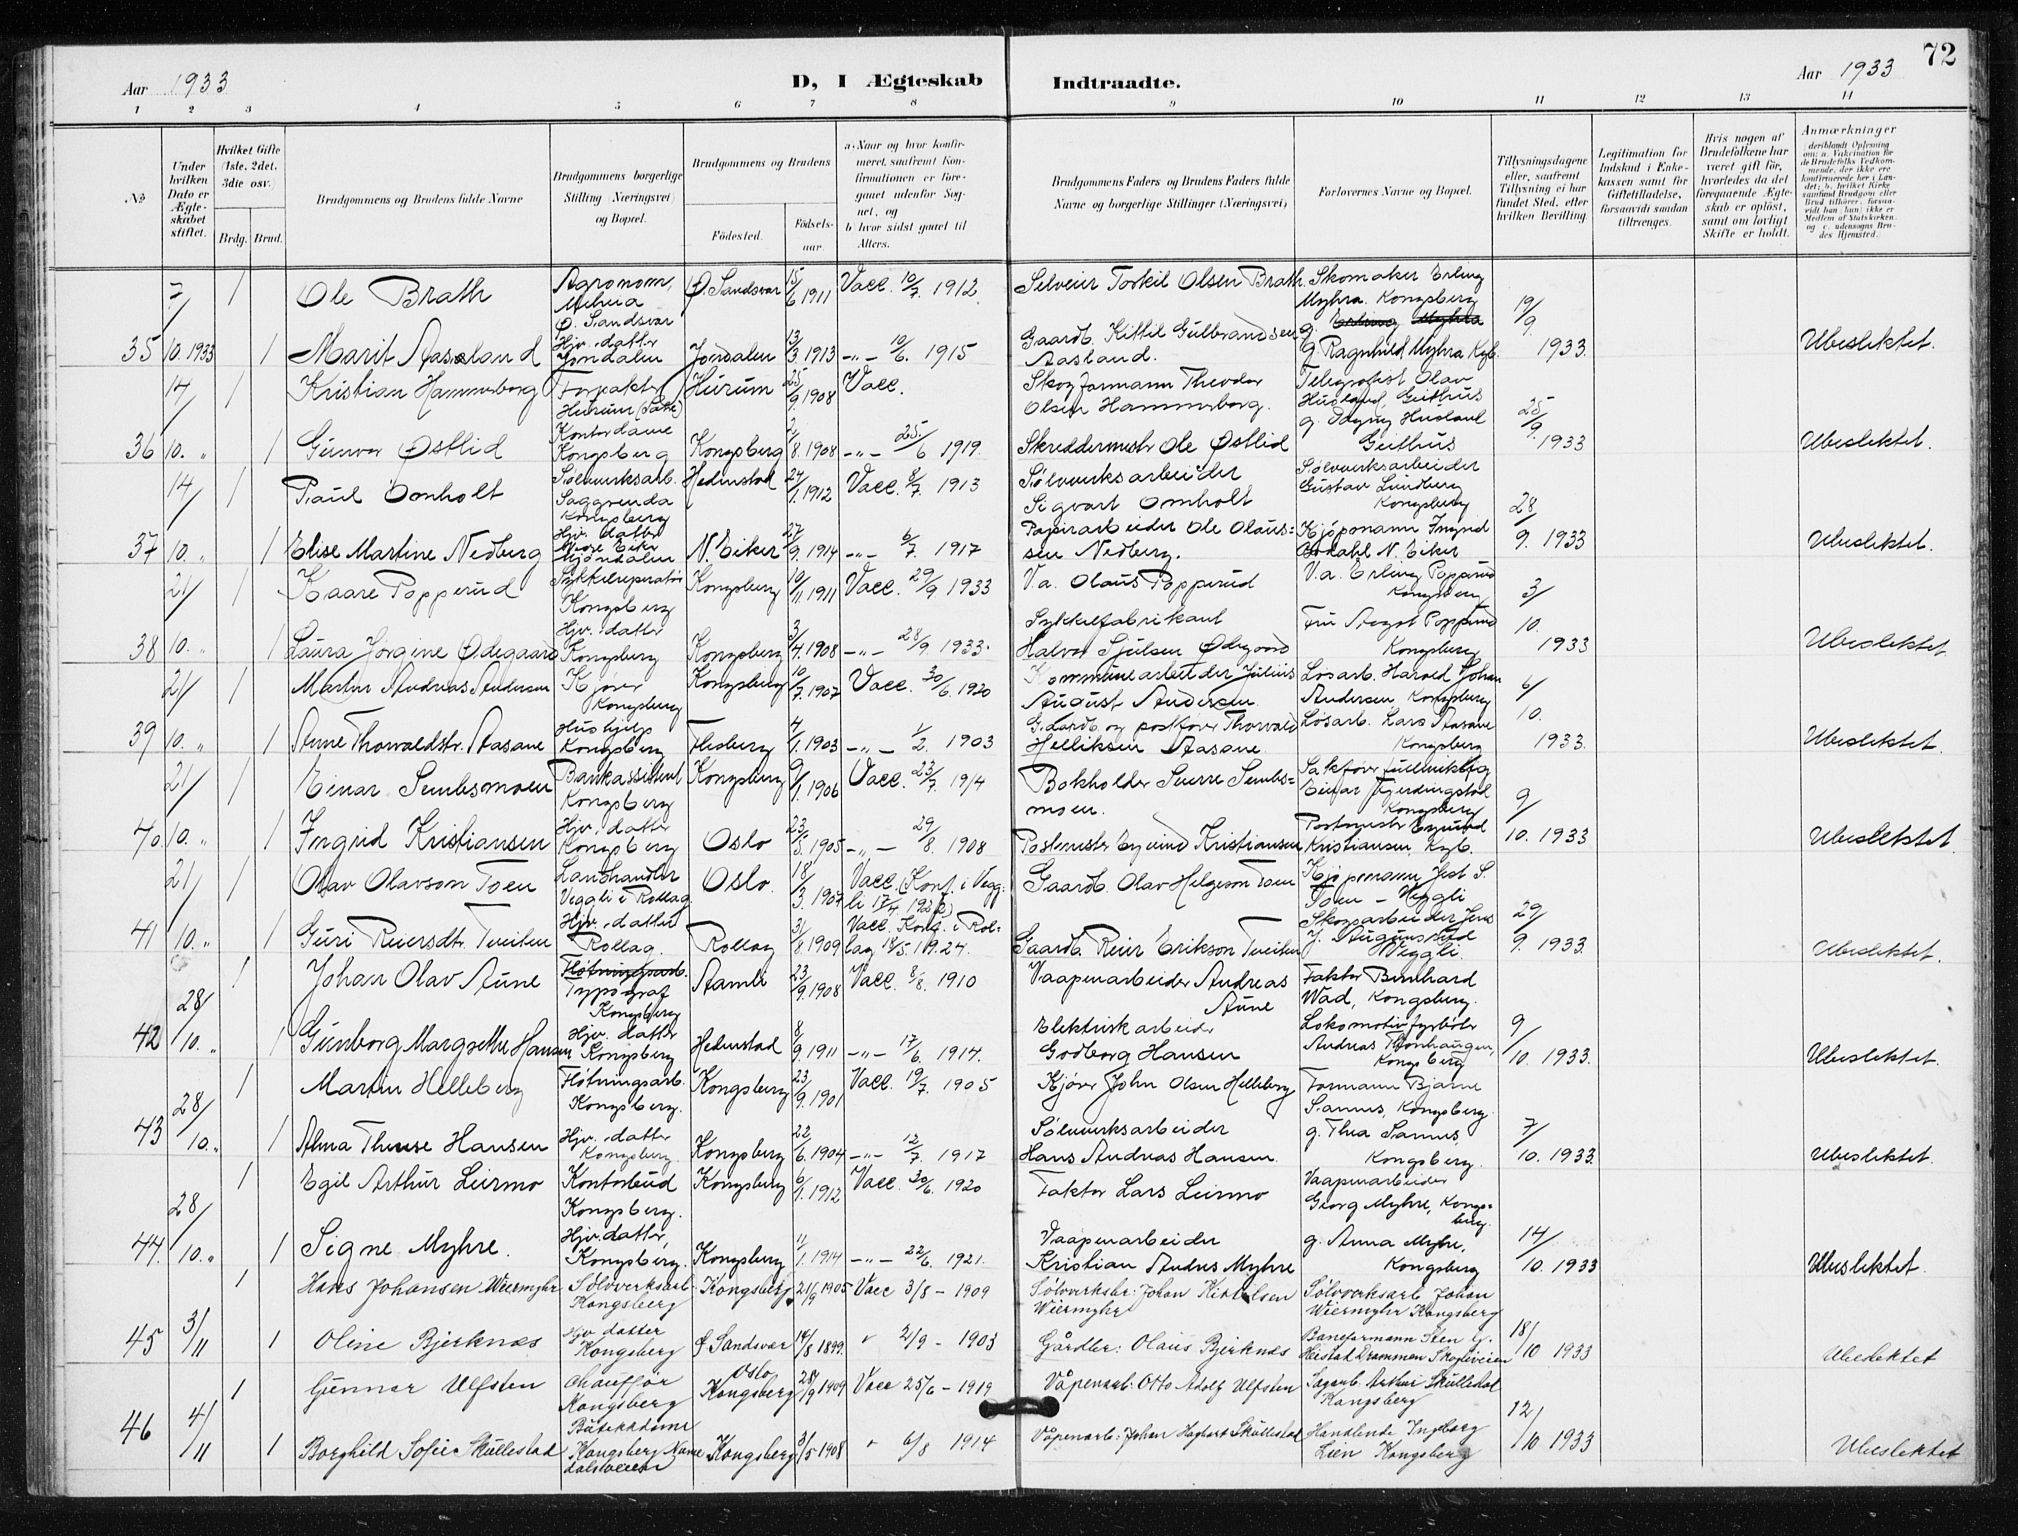 72
Aar 1933
D, I Ægteskab
Indtraadte.
Aar 1933
1 2 3 4 5 6 7 8 9 10 11 12 13 14
No
Under hvilken Dato er Ægteskabet stiftet.
Hvilket Gifte (1ste, 2det, 3die osv.)
Brdg. Brud.
Brudgommens og Brudens fulde Navne
Brudgommens borgerlige Stilling (Næringsvei) og Bopæl.
Brudgommens og Brudens
Fødested. Fødselsaar.
a. Naar og hvor konfirmeret, saafremt Konfirmationen er foregaaet udenfor Sognet, og
b. hvor sidst gaaet til Alters.
Brudgommens Faders og Brudens Faders fulde Navne og borgerlige Stillinger (Næringsvei)
Forlovernes Navne og Bopæl.
Tillysningsdagene eller, saafremt Tillysning ei har fundet Sted, efter hvilken Bevilling.
Legitimation for Indskud i Enkekassen samt for Giftetilladelse, forsaavidt saadan tiltrænges.
Hvis nogen af Brudefolkene har været gift før, hvorledes da det foregaaende Ægteskab er opløst, samt om lovligt Skifte er holdt.
Anmærkninger
7/ 1 Ole Brath Agronom, Ø. Sandsvær 15/6 1911 Vacc. 10/7 1912. Selveier Torkil Olsen Brath. Skomaker Erling Myhra. Kongsberg 19/9
35 10. 1933 1 Marit Aasland Hjv. datter Jondalen Jondalen 13/3 1913 -"- 10/6 1915 Gaardb. Kittil Gulbrandsen Aasland. g. Ragnhild Myhra Kgb. 1933. Ubeslektet.
14/ 1 Kristian Hammerborg Forpakter Hurum (Sætre) Hurum 25/9 1908 Vacc. Skogformann Theodor Olsen Hammerborg. Telegrafist Olav Husland, Geithus 25/9
36 10. " 1 Gunvor Østlid Kontordame Kongsberg Kongsberg 2/8 1908 -"- 25/6 1919. Skreddermestr Ole Østlid g. Dagny Husland Geithus 1933 Ubeslektet.
14/ 1 Paul Omholt Sølvverksarb. Saggrenda Kongsberg Hedenstad 24/1 1912 Vacc. 8/7 1913 Sølvverksarbeider Sigvart Omholt Sølvverksarbeider Gustav Lundberg Kongsberg 28/
37 10. " 1 Elise Martine Nedberg Hjv. datter Nedre Eiker Mjøndalen N. Eiker 27/9 1914 -"- 6/7 1917 Papirarbeider Ole Olaussen Nedberg. Kjøpmann Ingvald N. Eiker 9. 1933 Ubeslektet.
21/ 1 Kaare Popperud Sykkelreparatør Kongsberg Kongsberg 10/11 1911 Vacc. 29/9 1933 V.a. Olaus Popperud V.a. Erling Popperud Kongsberg 3/
38 10. " 1 Laura Jørgine Ødegaard Hjv. datter Kongsberg Kongsberg 3/4 1908 -"- 28/9 1933. Sykkelfabrikant Halvor Sjulsen Ødegaard Fru Aagot Popperud Kongsberg 10. 1933 Ubeslektet
21/ 1 Martin Andreas Andersen Kjører Kongsberg Kongsberg 10/7 1907 Vacc. 30/6 1920 Kommunearbeider Julius August Andersen Løsarb. Harald Johan Andersen Kongsberg 6/
39 10. " 1 Anne Thorvaldsdtr. Aasane Hushjelp Kongsberg Flesberg 4/1 1903 -"- 1/2. 1903 Gaardb. og postfører Thorvald Helliksen Aasane Løsarb. Lars Aasane Kongsberg 10. 1933. Ubeslektet.
21/ 1 Einar Sembsmoen Bankassistent Kongsberg Kongsberg 9/1 1906 Vacc. 23/7. 1914 Bokholder Sverre Sembsmoen. Sakfører fullmektig Einar Gjerdingstad Kongsberg 9/
40 10. " 1 Ingrid Kristiansen Hjv. datter Kongsberg Oslo 23/5 1905 -"- 29/8. 1908 Postmester Eyvind Kristiansen Postmester Eyvind Kristiansen. Kgb. 10. 1933 Ubeslektet.
21/ 1 Olav Olavson Toen Landhandler Veggli i Rollag Oslo. 18/3 1907 Vacc. (Konf. i Veggli 17/4 1922) Gaardb. Olav Helgeson Toen Kjøpmann Jost S. Toen - Veggli 29/
41 10. " 1 Guri Reiersdtr. Tveiten Hjv. datter Rollag. Rollag 3/8 1909 Vacc. Konf. i Rollag 18/5 1924. Gaardb. Reier Erikson Tveiten Skogsarbeider Jens J. Veggli 9. 1933. Ubeslektet.
28/ 1 Johan Olav Aune Typograf Kongsberg Aamli 23/9 1908 Vacc. 8/8. 1910 Vaapenarbeider Andreas Aune Faktor Bernhard Wad, Kongsberg. 9/
42 10. " 1 Gunborg Margrethe Hansen Hjv. datter Kongsberg Hedenstad 8/9 1911 -"- 17/6. 1914. Elektriskarbeider Godborg Hansen Lokomotivfyrbøter Andreas Tronhaugen, Kongsberg 10. 1933. Ubeslektet.
28/ 1 Martin Helleberg Fløtningsarb. Kongsberg. Kongsberg 23/9 1901 Vacc. 19/7. 1905 Kjører John Olsen Helleberg Formann Bjarne Sannes, Kongsberg. 7/
43 10. " 1 Alma Therese Hansen Hjv. datter Kongsberg. Kongsberg 22/6 1904 -"- 12/7. 1917 Sølvverksarbeider Hans Andreas Hansen. g. Thea Sannes, Kongsberg. 10. 1933. Ubeslektet.
28/ 1 Egil Arthur Lurmo Kontorbud Kongsberg. Kongsberg 6/1 1912 Vacc. 30/6. 1920 Faktor Lars Lurmo Vaapenarbeider Georg Myhre, Kongsberg. 14/
44. 10. " 1 Signe Myhre. Hjv. datter, Kongsberg. Kongsberg 11/1 1914 -"- 22/6. 1921. Vaapenarbeider Kristian Andres Myhre g. Anna Myhre, Kongsberg 10. 1933 Ubeslektet.
1 Hans Johansen Wiermyhr Sølvverksarb. Kongsberg Kongsberg 21/9 1905 Vacc 3/8 - 1909 Sølvverksbr: Johan Kittelsen Wiermyhr Sølvverksarb Johan Wiermyhr Kongsberg 18/
45 3/11 1 Oline Bjerknæs Hjv. datter Kongsberg Ø Sandsvær 14/8 1899. " 2/9 - 1903 Gårdbr: Olaus Bjerknæs Baneformann Sten G. Heistad Drammen Skogliveien 10 1933 Ubeslektet
1 Gunnar Ulfsten Chauffør Kongsberg Oslo Kongsberg 28/9 1909 Vacc 25/6 - 1919 Våpenarb: Otto Adolf Ulfsten Sagarb. Arthur Skullestad Kongsberg 12/
46 4/11 1 Borghild Sofie Skullestad Butikkdame Kongsberg Numedalsveien Kongsberg 3/5 1908 " 6/8 1914 Våpenarb: Johan Hagbart Skullestad Handlende Ingeborg Lien Kongsberg 10 1933 Ubeslektet